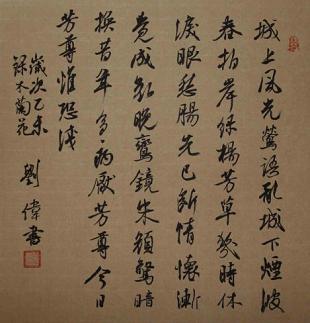 城上風光鶯語乱城下煙波
春拍岸綠楊芳草幾時休
淚眼愁腸先已斷情懷漸
覺成衰晚鸞鏡朱顏驚暗
換昔年多病厭芳尊今日
芳尊惟恐淺
歲次乙未
錄木蘭花
劉偉書